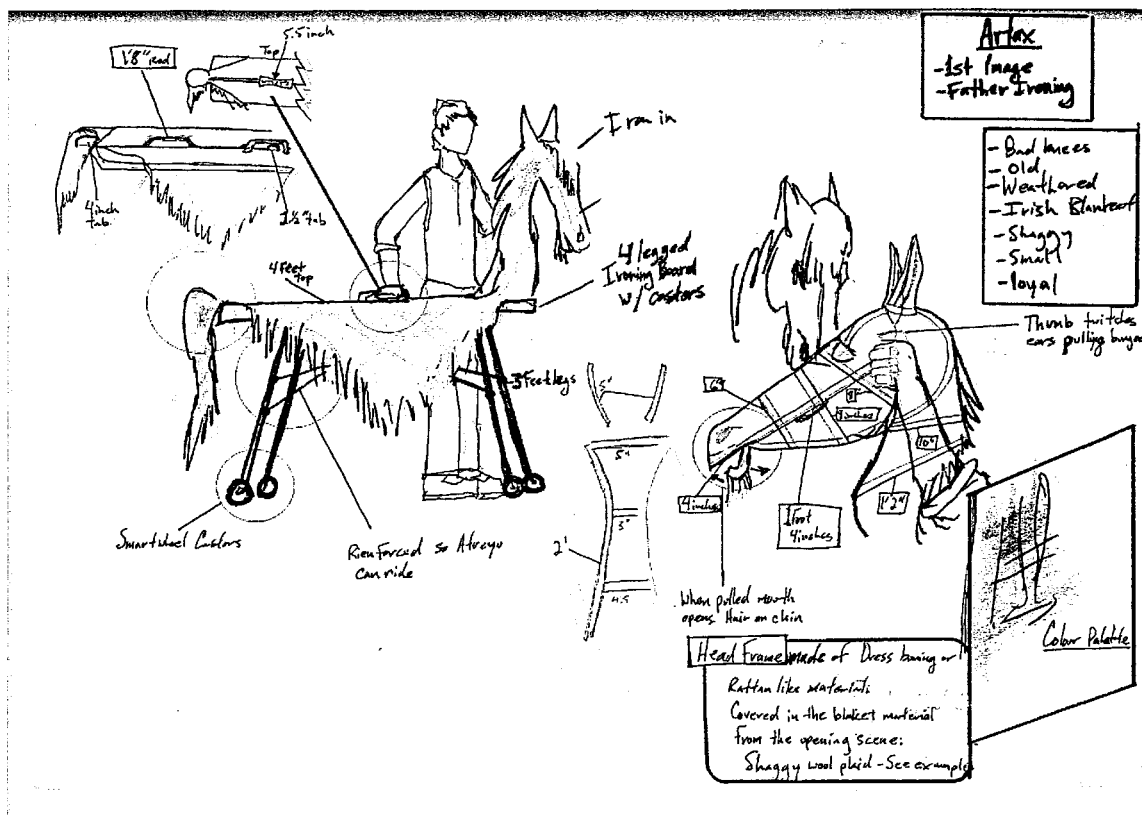 Artax
-1st Image
-Father Ironing
- Bad knees
- Old
- Weathered
- Irish Blanket
- Shaggy
- Small
- loyal
5.5 inch
Top
1'8" Rod
4 inch
tab
1½" tab
4 Feet
top
Iron in
4 legged
Ironing Board
w/ castors
3 Feet legs
Smartwheel Castors
Rienforced so Atreyu
can ride
5"
5"
3"
4.5
2'
Thumb twitches
ears pulling
6"
8"
9 inches
10"
4 inches
1 foot
4 inches
1'2"
When pulled mouth
opens Hair on chin
Head Frame made of Dress boning or
Rattan like materials
Covered in the blaket material
from the opening scene:
Shaggy wool plaid - See example
Colour Palette